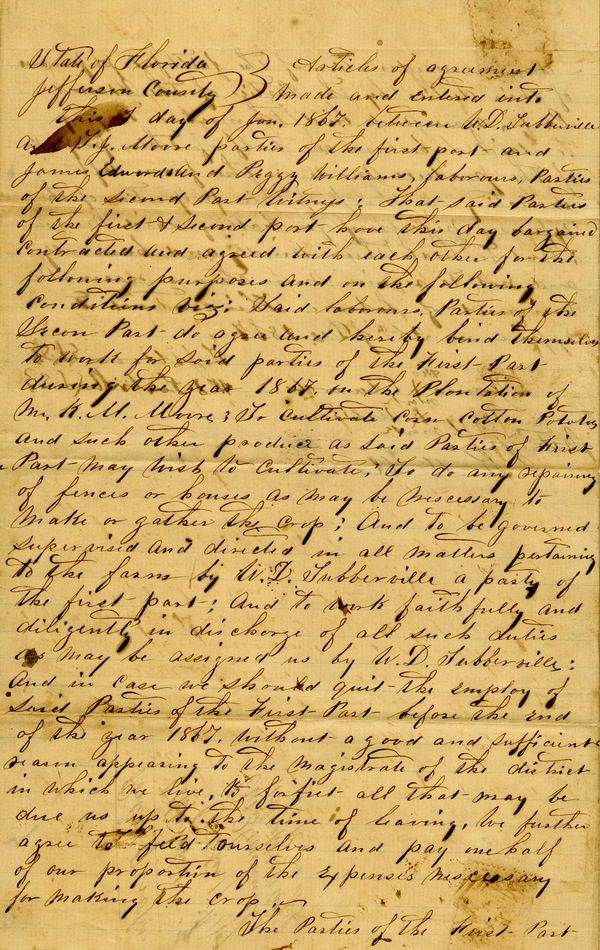 State of Florida } Articles of agreement
Jefferson County } made and entered into
This 1 day of Jan. 1867. between W. D. Tubberville
and J. Moore parties of the first part and
James Edwards and Peggy Williams, labours, Parties
of the Second Part Witnys; That said Parties
of the first & second part have this day bargained
contracted and agreed with each other for the
following purposes and on the following
conditions viz: Said labours, Parties of the
Secon Part do agree and hereby bind themselves
to work for said parties of the First Part
during the year 1867. on the Plantation of
Mr. K. M. Moore; To cultivate corn cotton Potatoes
and such other produce as said Parties of First
Part may wish to cultivate; To do any repairing
of fences or houses as may be nescessary to
make or gather the crop; And to be governed
supervised and directed in all matters pertaining
to the farm by W. D. Tubberville a party of
the first part; And to work faithfully and
diligently in discharge of all such duties
as may be assigned us by W. D. Tubberville:
And in case we should quit the employ of
said Parties of the First Part before the end
of the year 1867. without a good and sufficient
reason appearing to the magistrate of the district
in which we live, to forfiet all that may be
due us up to the time of leaving, We further
agree to feed ourselves and pay one half
of our proportion of the Expenses nescessary
for making the crop
The Parties of the First Part